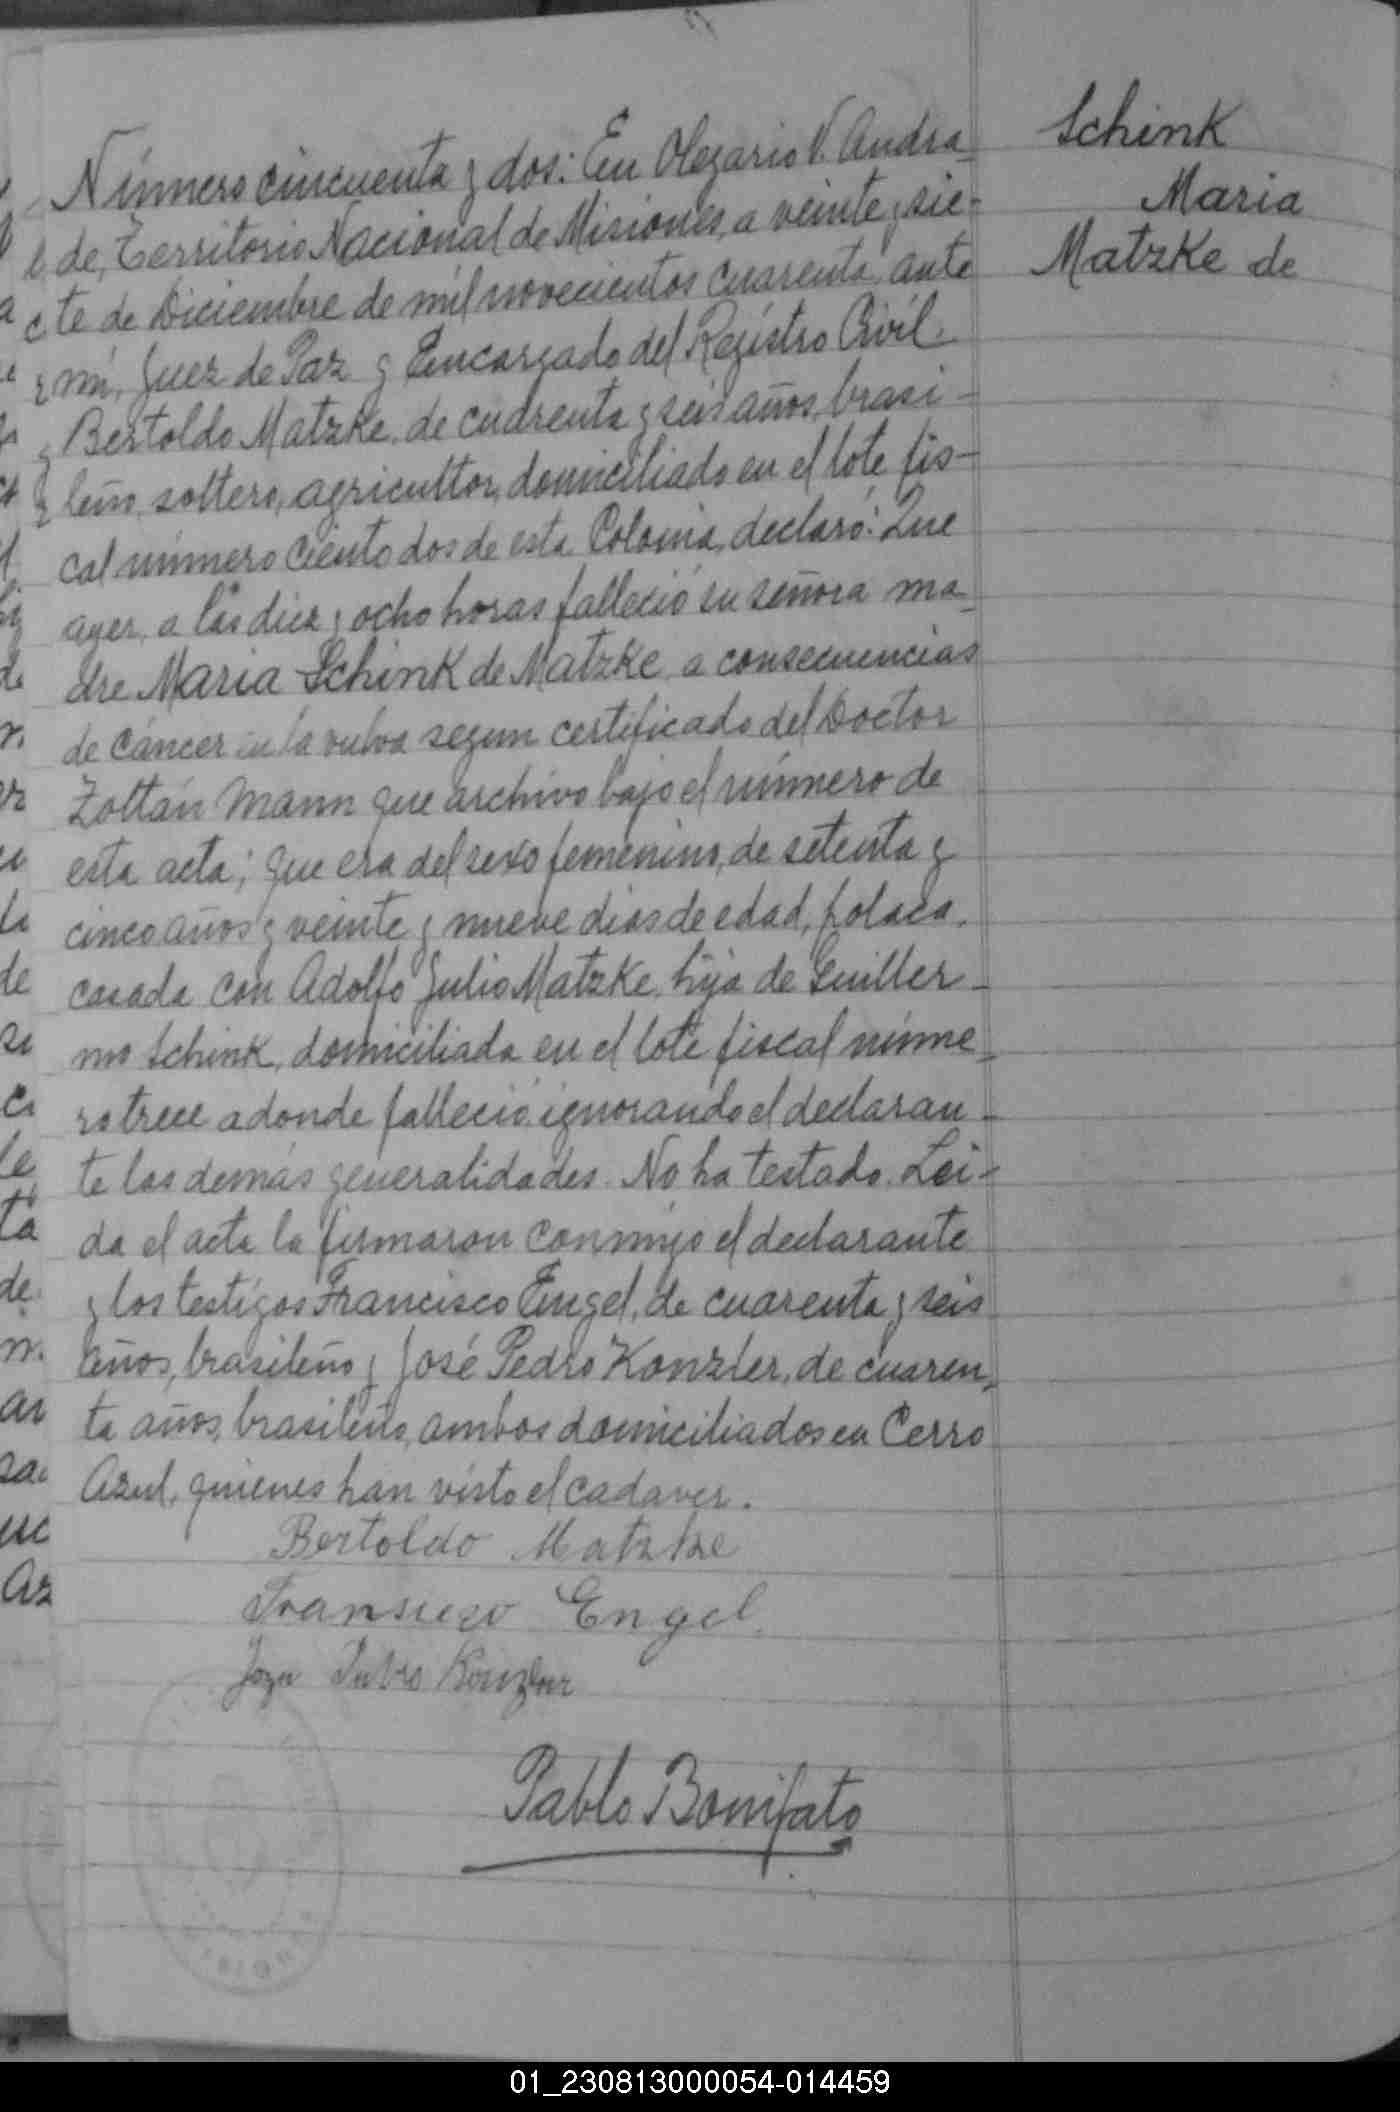 Número cincuenta y dos: En Olegario V. Andra-
de, Territorio Nacional de Misiones, a veinte y sie-
te de Diciembre de mil novecientos cuarenta, ante
mi, Juez de Paz y Encargado del Registro Civil.
Bertoldo Matzke, de cuarenta y seis años, brasi-
leño, soltero, agricultor, domiciliado en el lote fis-
cal número ciento dos de esta Colonia, declaró: Que
ayer, a las diez y ocho horas falleció su señora ma-
dre Maria Schink de Matzke, a consecuencias
de cáncer en la vulva segun certificado del Doctor
Zoltán Mann que archivo bajo el número de
esta acta; que era del sexo femenino, de setenta y
cinco años y veinte y nueve dias de edad, polaca,
casada con Adolfo Julio Matzke, hija de Guiller-
mo Schink, domiciliada en el lote fiscal núme-
ro trece adonde falleció, ignorando el declaran-
te las demás generalidades. No ha testado. Lei-
da el acta la firmaron conmigo el declarante
y los testigos Francisco Engel, de cuarenta y seis
años, brasileño y José Pedro Konzler, de cuaren-
ta años, brasileño, ambos domiciliados en Cerro
Azul, quienes han visto el cadaver.
Bertoldo Matzke
Fransisco Engel.
Pablo Bonifato
Schink
Maria
Matzke de
01_230813000054-014459